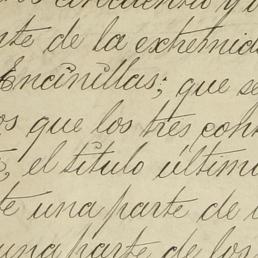 cincuenta y
de la extremid
Encinillas; que se
que los tres con
el título último
una parte de
una parte de los